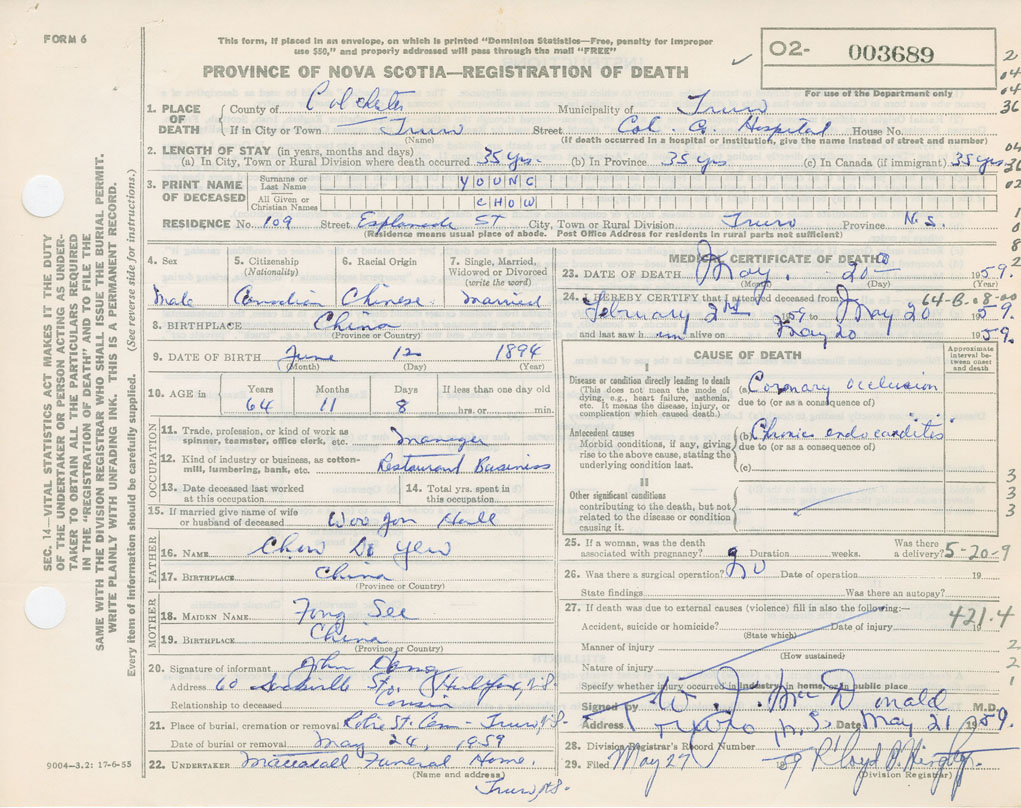 FORM 6
This form, if placed in an envelope, on which is printed "Dominion Statistics—Free, penalty for improper
use $50," and properly addressed will pass through the mail "FREE"
PROVINCE OF NOVA SCOTIA—REGISTRATION OF DEATH
O2- 003689
For use of the Department only
SEC. 14—VITAL STATISTICS ACT MAKES IT THE DUTY
OF THE UNDERTAKER OR PERSON ACTING AS UNDER-
TAKER TO OBTAIN ALL THE PARTICULARS REQUIRED
IN THE "REGISTRATION OF DEATH" AND TO FILE THE
SAME WITH THE DIVISION REGISTRAR WHO SHALL ISSUE THE BURIAL PERMIT.
WRITE PLAINLY WITH UNFADING INK. THIS IS A PERMANENT RECORD.
Every item of information should be carefully supplied. (See reverse side for instructions.)
1. PLACE OF DEATH
County of Colchester Municipality of Truro
If in City or Town Truro Street Col. Co. Hospital House No.
(Name) (If death occurred in a hospital or institution, give the name instead of street and number)
2. LENGTH OF STAY (in years, months and days)
(a) In City, Town or Rural Division where death occurred 35 yrs. (b) In Province 35 yrs (c) In Canada (if immigrant) 35 yrs
3. PRINT NAME OF DECEASED
Surname or Last Name YOUNG
All Given or Christian Names CHOW
RESIDENCE No. 109 Street Esplanade St City, Town or Rural Division Truro Province N.S.
(Residence means usual place of abode. Post Office Address for residents in rural parts not sufficient)
4. Sex
Male
5. Citizenship (Nationality)
Canadian
6. Racial Origin
Chinese
7. Single, Married, Widowed or Divorced (write the word)
Married
8. BIRTHPLACE China
(Province or Country)
9. DATE OF BIRTH June 12 1894
(Month) (Day) (Year)
10. AGE in Years Months Days If less than one day old
64 11 8 hrs. or min.
OCCUPATION
11. Trade, profession, or kind of work as spinner, teamster, office clerk, etc. Manager
12. Kind of industry or business, as cotton-mill, lumbering, bank, etc. Restaurant Business
13. Date deceased last worked at this occupation
14. Total yrs. spent in this occupation
15. If married give name of wife or husband of deceased Woo Jon
FATHER
16. NAME Chow De Yew
17. BIRTHPLACE China
(Province or Country)
MOTHER
18. MAIDEN NAME Fong See
19. BIRTHPLACE China
(Province or Country)
20. Signature of informant John
Address 60 St. Halifax, N.S.
Relationship to deceased Cousin
21. Place of burial, cremation or removal Robie St. Cem - Truro N.S.
Date of burial or removal May 24, 1959
22. UNDERTAKER Mattatall Funeral Home.
(Name and address)
Truro, N.S.
9004—3.2: 17-6-55
MEDICAL CERTIFICATE OF DEATH
23. DATE OF DEATH May. 20th 1959.
(Month) (Day) (Year)
64-B-08-00
24. I HEREBY CERTIFY that I attended deceased from
February 2nd 1959 to May 20 1959.
and last saw him alive on May 20 1959.
CAUSE OF DEATH
Approximate interval between onset and death
I
Disease or condition directly leading to death
(This does not mean the mode of dying, e.g., heart failure, asthenia, etc. It means the disease, injury, or complication which caused death.)
(a) Coronary occlusion
due to (or as a consequence of)
Antecedent causes
Morbid conditions, if any, giving rise to the above cause, stating the underlying condition last.
(b) Chronic endocarditis
due to (or as a consequence of)
(c)
II
Other significant conditions
contributing to the death, but not related to the disease or condition causing it.
25. If a woman, was the death associated with pregnancy? Duration weeks. Was there a delivery? 5-20-9
26. Was there a surgical operation? No Date of operation 19
State findings Was there an autopsy?
27. If death was due to external causes (violence) fill in also the following:—
421.4
Accident, suicide or homicide? Date of injury 19
(State which)
Manner of injury
(How sustained)
Nature of injury
Specify whether injury occurred in industry, in home, or in public place
Signed by W. J. MacDonald M.D.
Address Truro N.S. Date May 21 1959.
28. Division Registrar's Record Number
29. Filed May 27 1959
(Division Registrar)